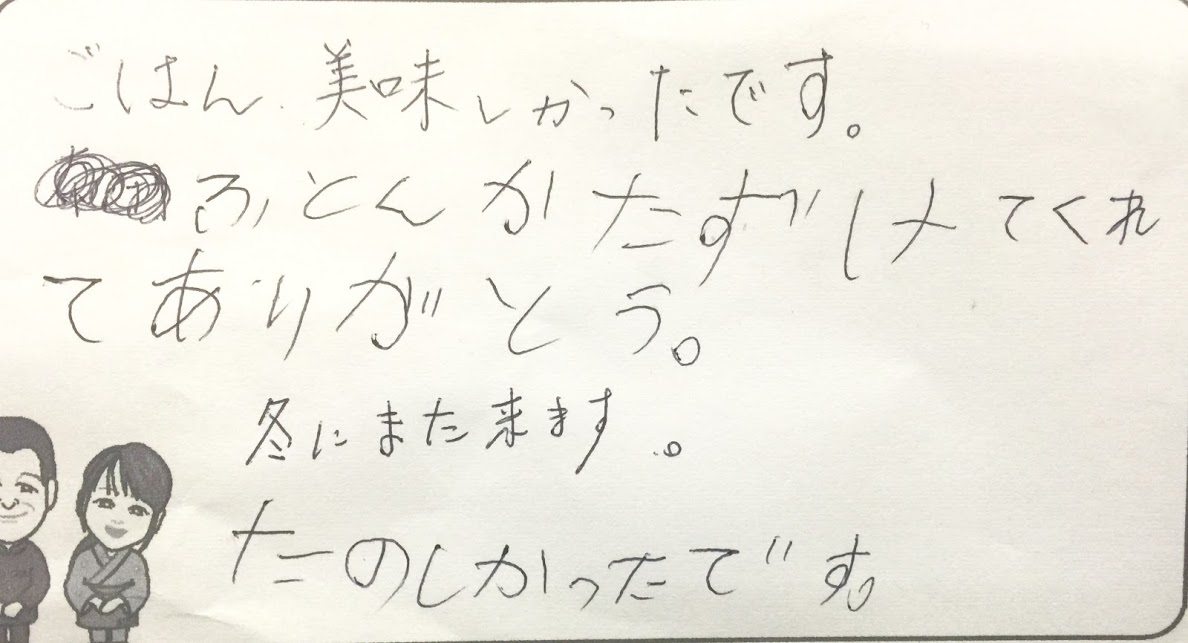 ごはん美味しかったです。
ふとんかたずけてくれ
てありがとう。
冬にまた来ます。
たのしかったです。